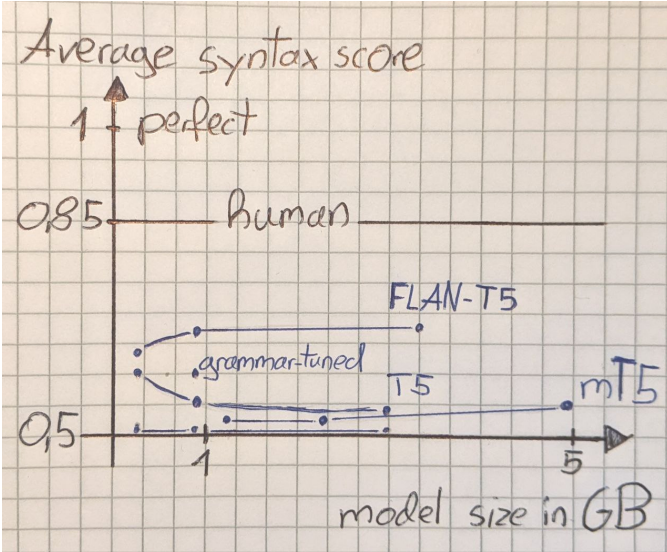 Average syntax score
1 perfect
0,85 human
FLAN-T5
grammar-tuned
T5
mT5
0,5
1
5
model size in GB